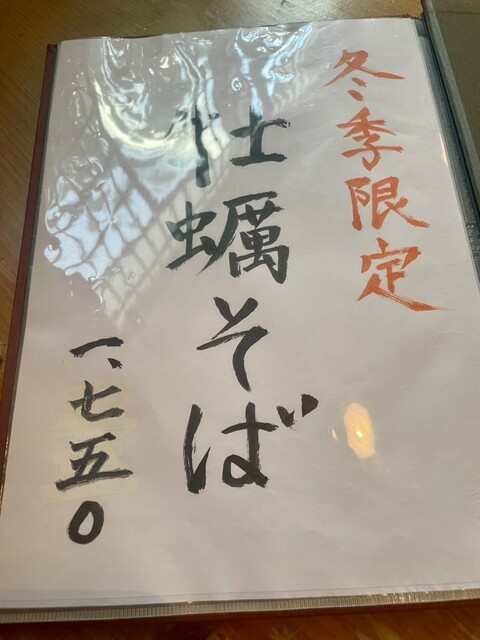 冬季限定
牡蠣そば
一、七五〇